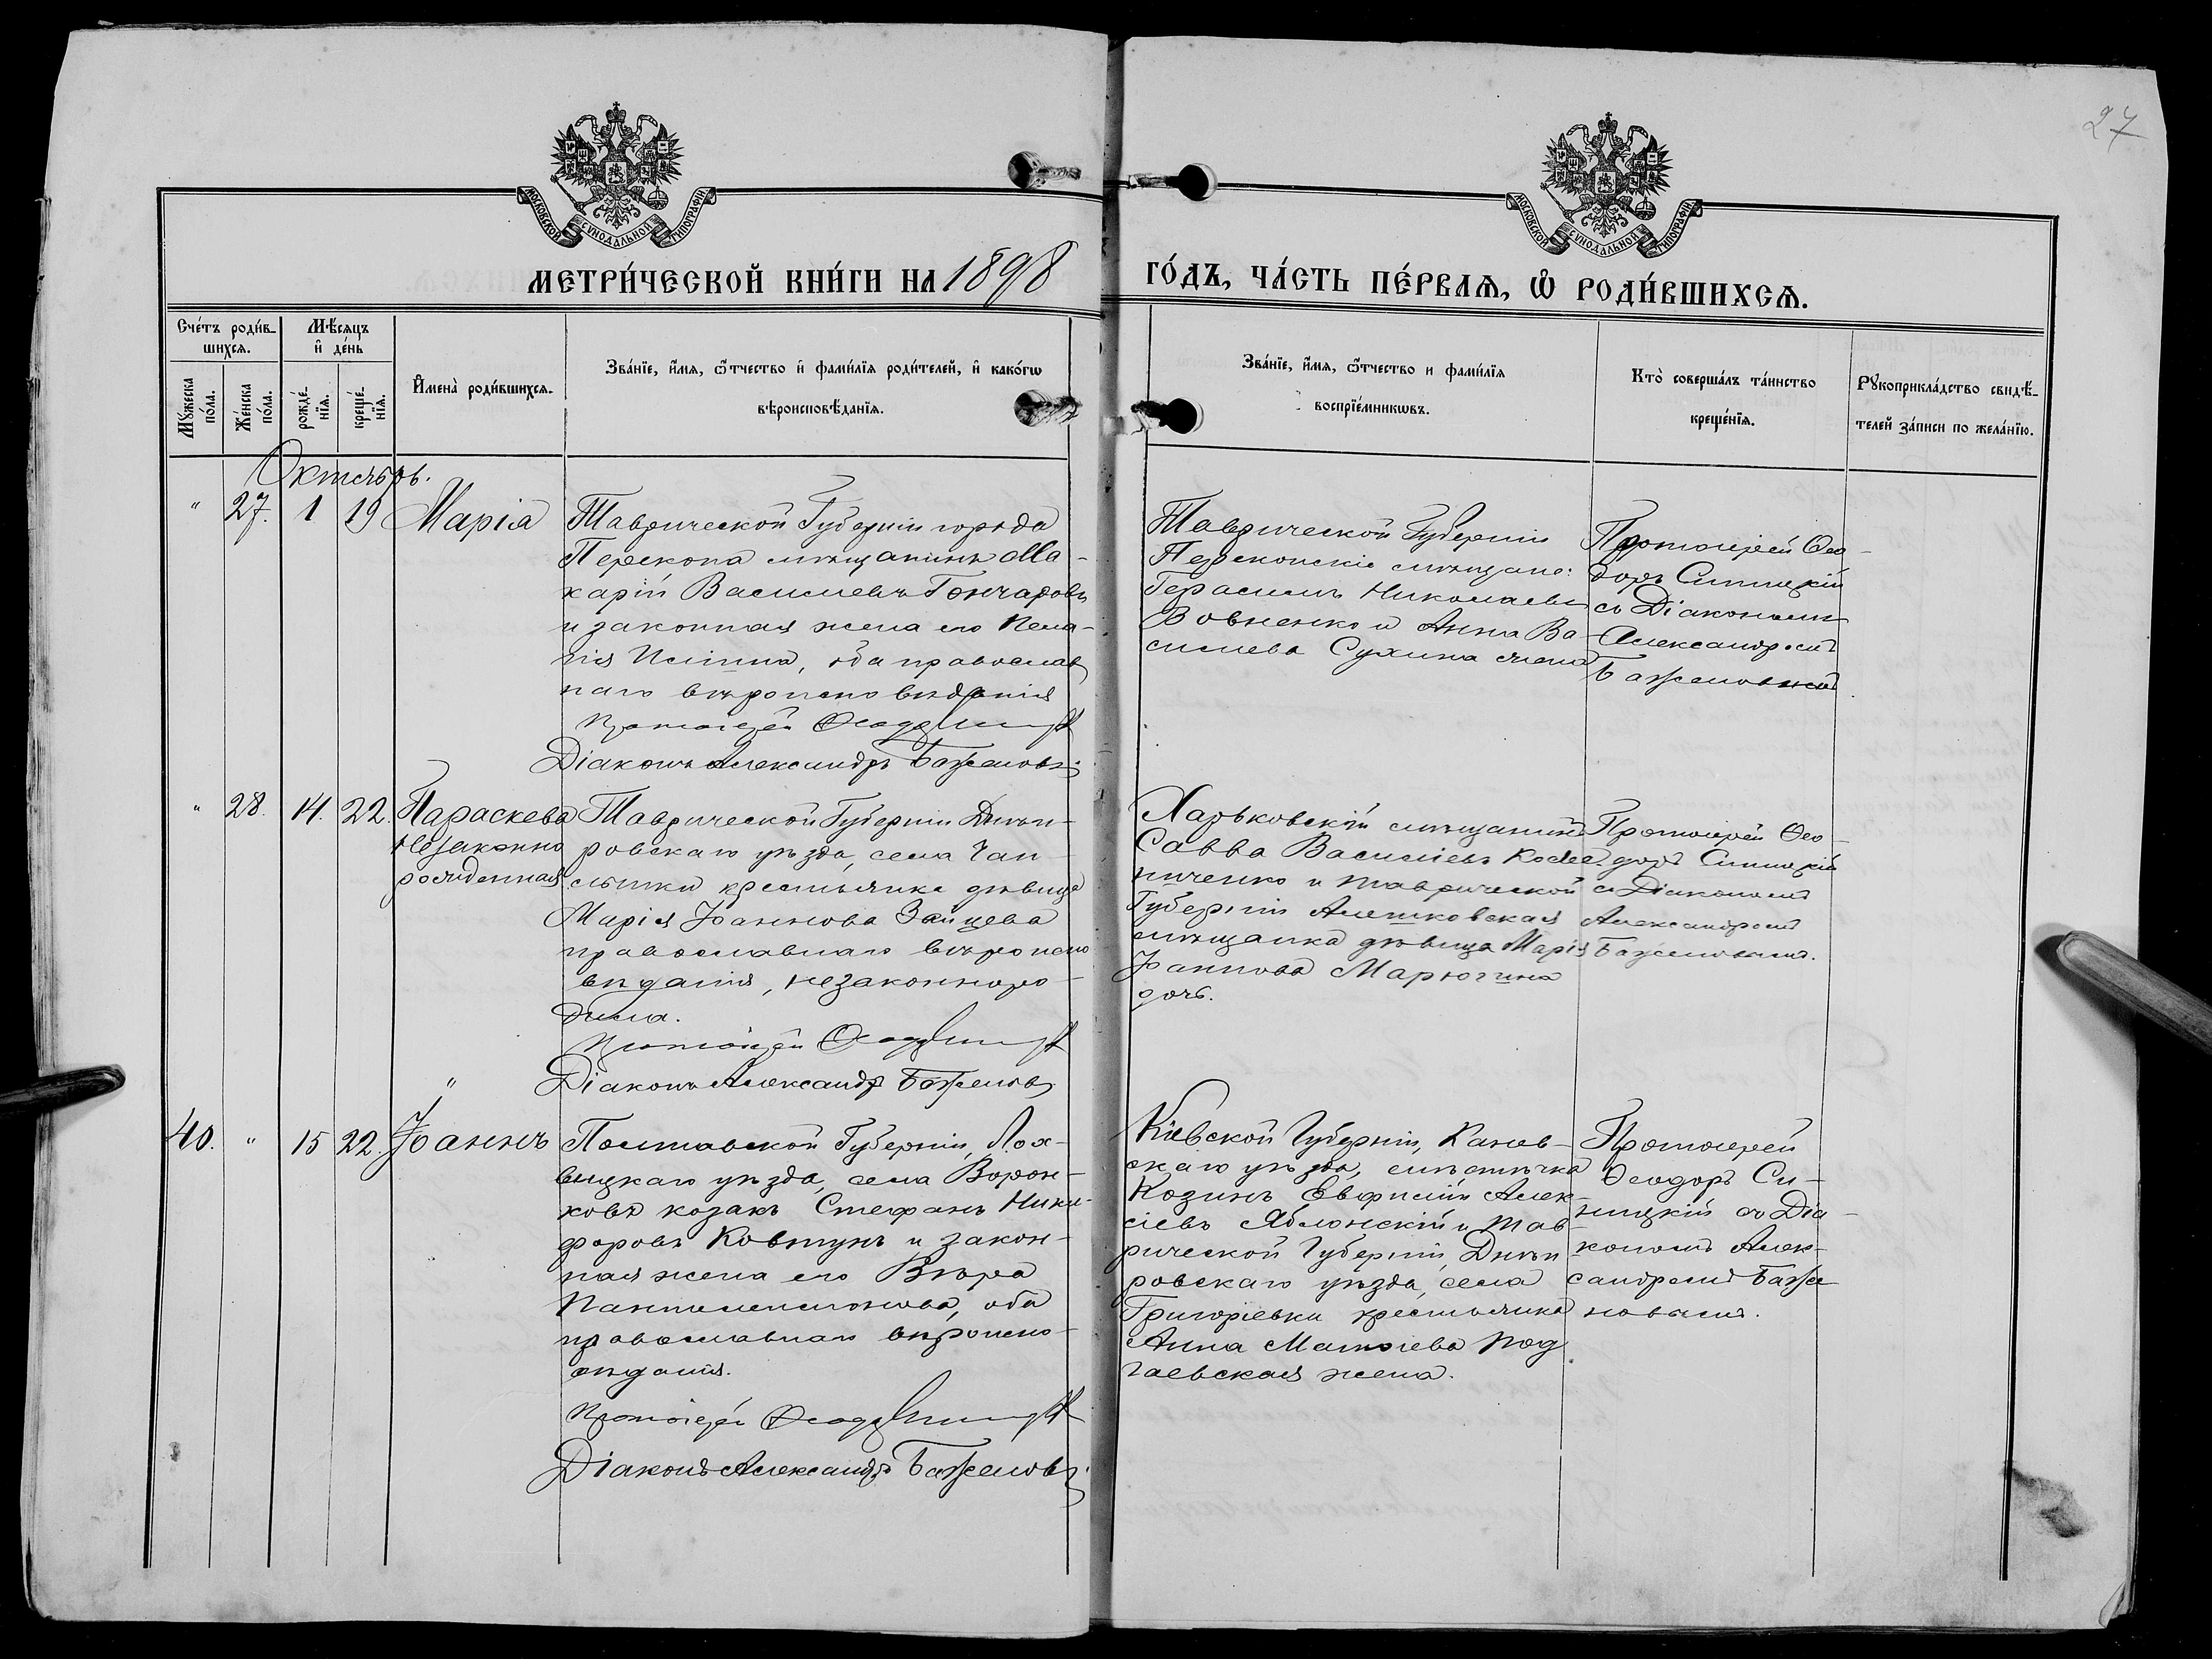 27
МОСКОВСКОЙ СѴНОДАЛЬНОЙ ТИПОГРАФІИ
МОСКОВСКОЙ СѴНОДАЛЬНОЙ ТИПОГРАФІИ
МЕТРИ́ЧЕСКОЙ КНИ́ГИ НА 1898
ГО́ДЪ, ЧА́СТЬ ПЕ́РВАѦ, Ѽ РОДИ́ВШИХСѦ.
Сче́тъ роди́в-
шихсѧ.
Мꙋ́жеска
по́ла.
Же́нска
по́ла.
Мѣ́сѧцъ
и҆ де́нь
рожде́-
нїѧ.
креще́-
нїѧ.
И҆мена̀ роди́вшихсѧ.
Зва́нїе, и҆́мѧ, ѻ҆́тчество и҆ фами́лїѧ роди́телей, и҆ како́гѡ
вѣроисповѣ́данїѧ.
Зва́нїе, и҆́мѧ, ѻ҆́тчество и фами́лїѧ
воспрїе́мникѡвъ.
Кто̀ соверша́лъ та́инство
креще́нїѧ.
Рꙋкоприкла́дство свидѣ́-
телей за́писи по жела́нїю.
Октябрь.
" 27. 1 19 Марія
Таврической Губерніи города
Перекопа мѣщанинъ Ма-
карій Васильевъ Гончаровъ
и законная жена его Пела-
гія Ильина, оба православ
наго вѣроисповѣданія
Протоіерей Ѳеодоръ
Діаконъ Александръ Баженовъ
Таврической Губерніи
Перекопскіе мѣщане:
Герасимъ Николаевъ
Вовненко и Анна Ва-
сильева Сухина
Протоіерей Ѳео-
доръ Синицкій
съ Діакономъ
Александромъ
Баженовымъ
" 28. 14. 22. Параскева
незаконно
рожденная
Таврической Губерніи Днѣп-
ровскаго уѣзда, села Чап-
лынки крестьянка дѣвица
Марія Іоаннова Зайцева
православнаго вѣроиспо
вѣданія, незаконноро-
дила.
Протоіерей Ѳеодоръ
Діаконъ Александръ Баженовъ
Харьковскій мѣщанинъ
Савва Василіевъ
и Таврической
Губерніи Алешковская
мѣщанка дѣвица Марія
Іаннова Марюгина
дочь.
Протоіерей Ѳео-
доръ Синицкій
съ Діакономъ
Александромъ
Баженовымъ.
40. " 15 22. Іоаннъ
Полтавской Губерніи, Лох-
вицкаго уѣзда, села Ворон-
ковъ козакъ Стефанъ Ники-
форовъ Ковтунъ и закон-
ная жена его Вѣра
Пантелеимонова, оба
православнаго вѣроиспо-
вѣданія.
Протоіерей Ѳеодоръ
Діаконъ Александръ Баженовъ
Кіевской Губерніи, Канев-
скаго уѣзда, мѣстечка
Козинъ Евфимій Алек-
сіевъ Яблонскій и Тав-
рической Губерніи, Днѣп
ровскаго уѣзда, села
Григоріевки крестьянка
Анна Матѳіева Под
гаевская жена.
Протоіерей
Ѳеодоръ Си-
ницкій съ Діа-
кономъ Алек-
сандромъ Баже
новымъ.